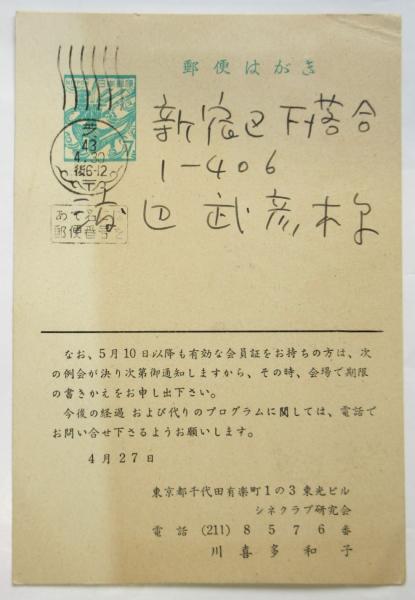 郵便はがき
新宿区下落合
1-406
渡辺 武彦様
43
4.30
後6-12
〒
あて名に
郵便番号を
7
なお、5月10日以降も有効な会員証をお持ちの方は、次
の例会が決り次第御通知しますから、その時、会場で期限
の書きかえをお申し出下さい。
今後の経過 および代りのプログラムに関しては、電話で
お問い合せ下さるようお願いします。
4月27日
東京都千代田有楽町1の3 東光ビル
シネクラブ研究会
電話 (211) 8576番
川喜多和子